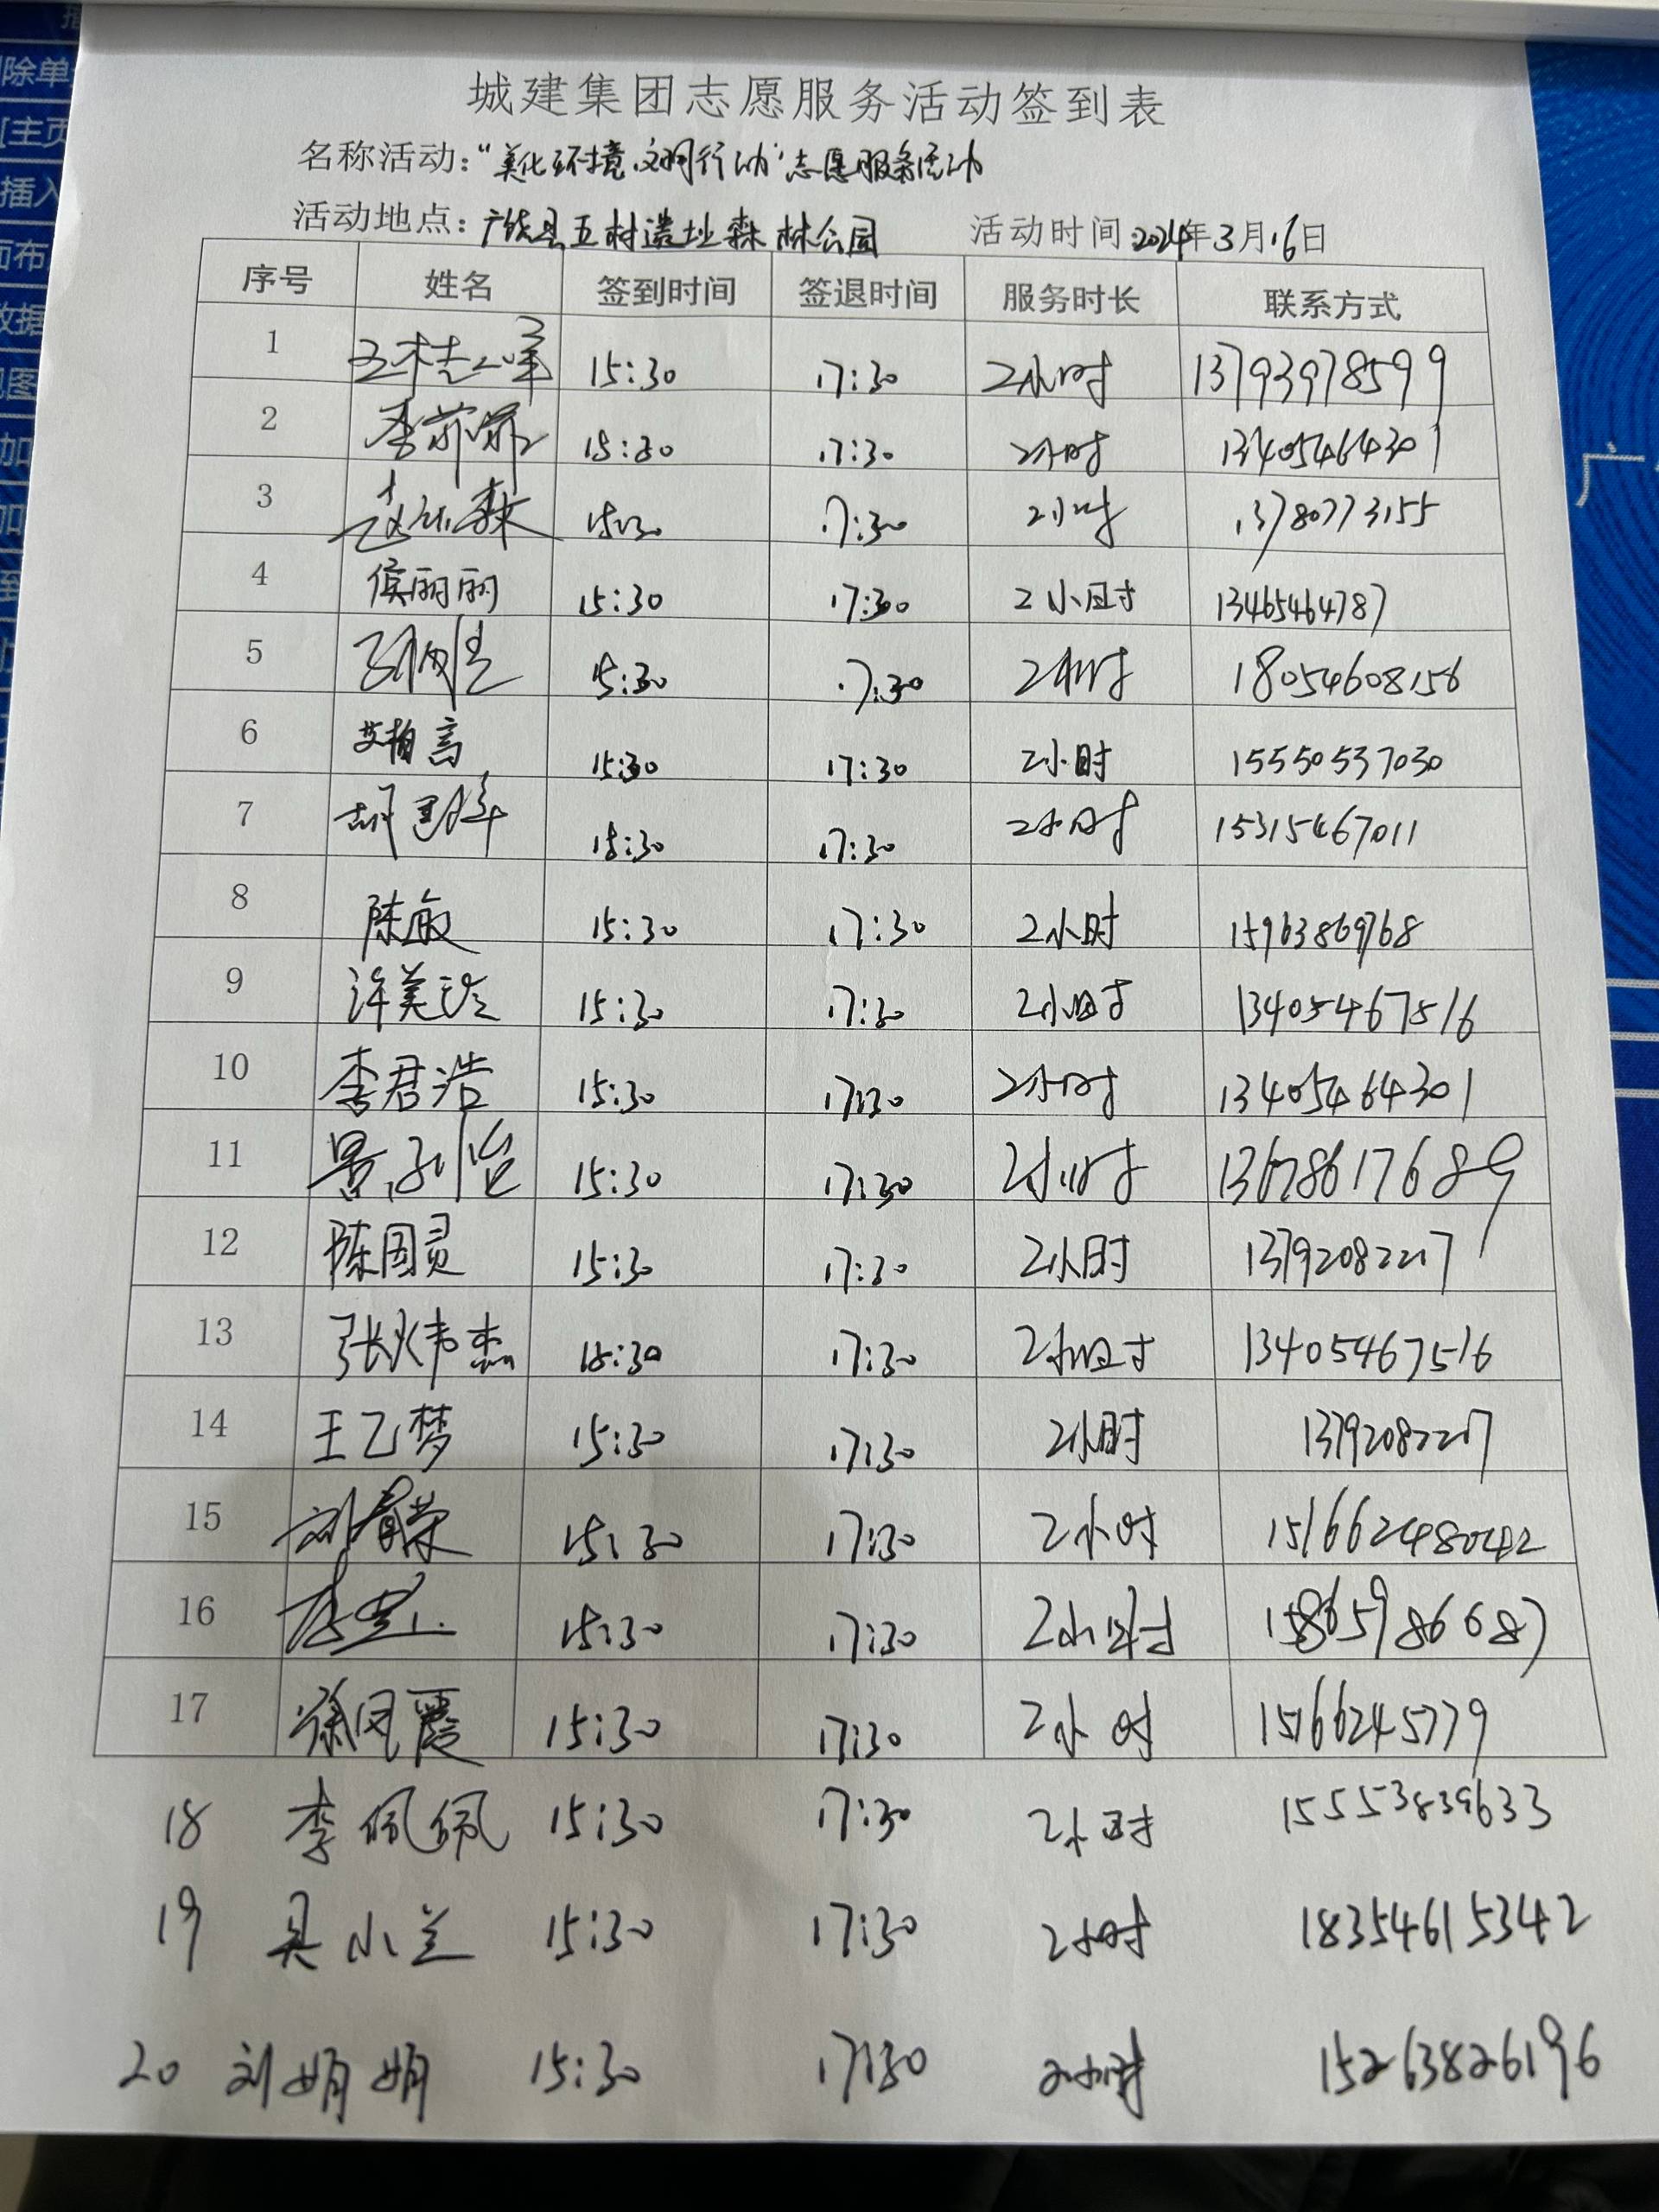 城建集团志愿服务活动签到表
名称活动:“美化环境、文明行动”志愿服务活动
活动地点:广饶县五村遗址森林公园 活动时间:2024年3月16日
序号 姓名 签到时间 签退时间 服务时长 联系方式
1 15:30 17:30 2小时 13793978599
2 李菲菲 15:30 17:30 2小时 13405464301
3 15:30 17:30 2小时 13780773155
4 侯丽丽 15:30 17:30 2小时 13465464787
5 15:30 17:30 2小时 18054608156
6 艾柏高 15:30 17:30 2小时 15550537030
7 15:30 17:30 2小时 15315467011
8 陈敏 15:30 17:30 2小时 15963869768
9 许美玲 15:30 17:30 2小时 13405467516
10 李君浩 15:30 17:30 2小时 13405464301
11 15:30 17:30 2小时 13678617689
12 陈国灵 15:30 17:30 2小时 13792082217
13 张炜杰 15:30 17:30 2小时 13405467516
14 王乙梦 15:30 17:30 2小时 13792082217
15 刘春荣 15:30 17:30 2小时 151662480242
16 15:30 17:30 2小时 15865986687
17 徐凤霞 15:30 17:30 2小时 15166245779
18 李佩佩 15:30 17:30 2小时 15553839633
19 吴小兰 15:30 17:30 2小时 18354615342
20 刘娟娟 15:30 17:30 2小时 15263826196